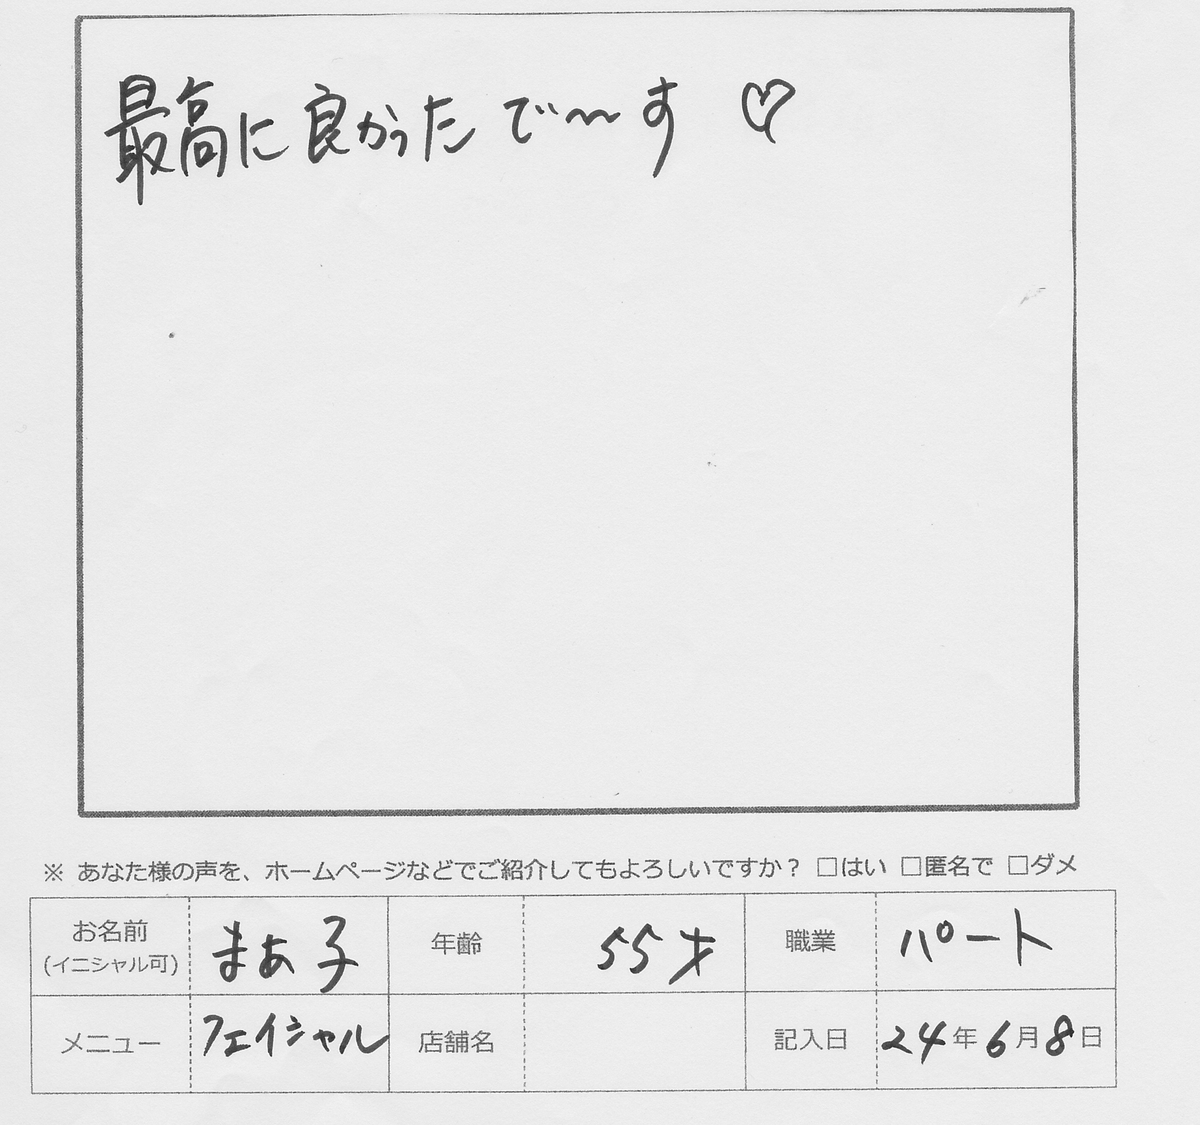 最高に良かったで〜す ♡
※ あなた様の声を、ホームページなどでご紹介してもよろしいですか？ □はい □匿名で □ダメ
お名前 (イニシャル可) まあ子 年齢 55才 職業 パート
メニュー フェイシャル 店舗名 記入日 24年6月8日